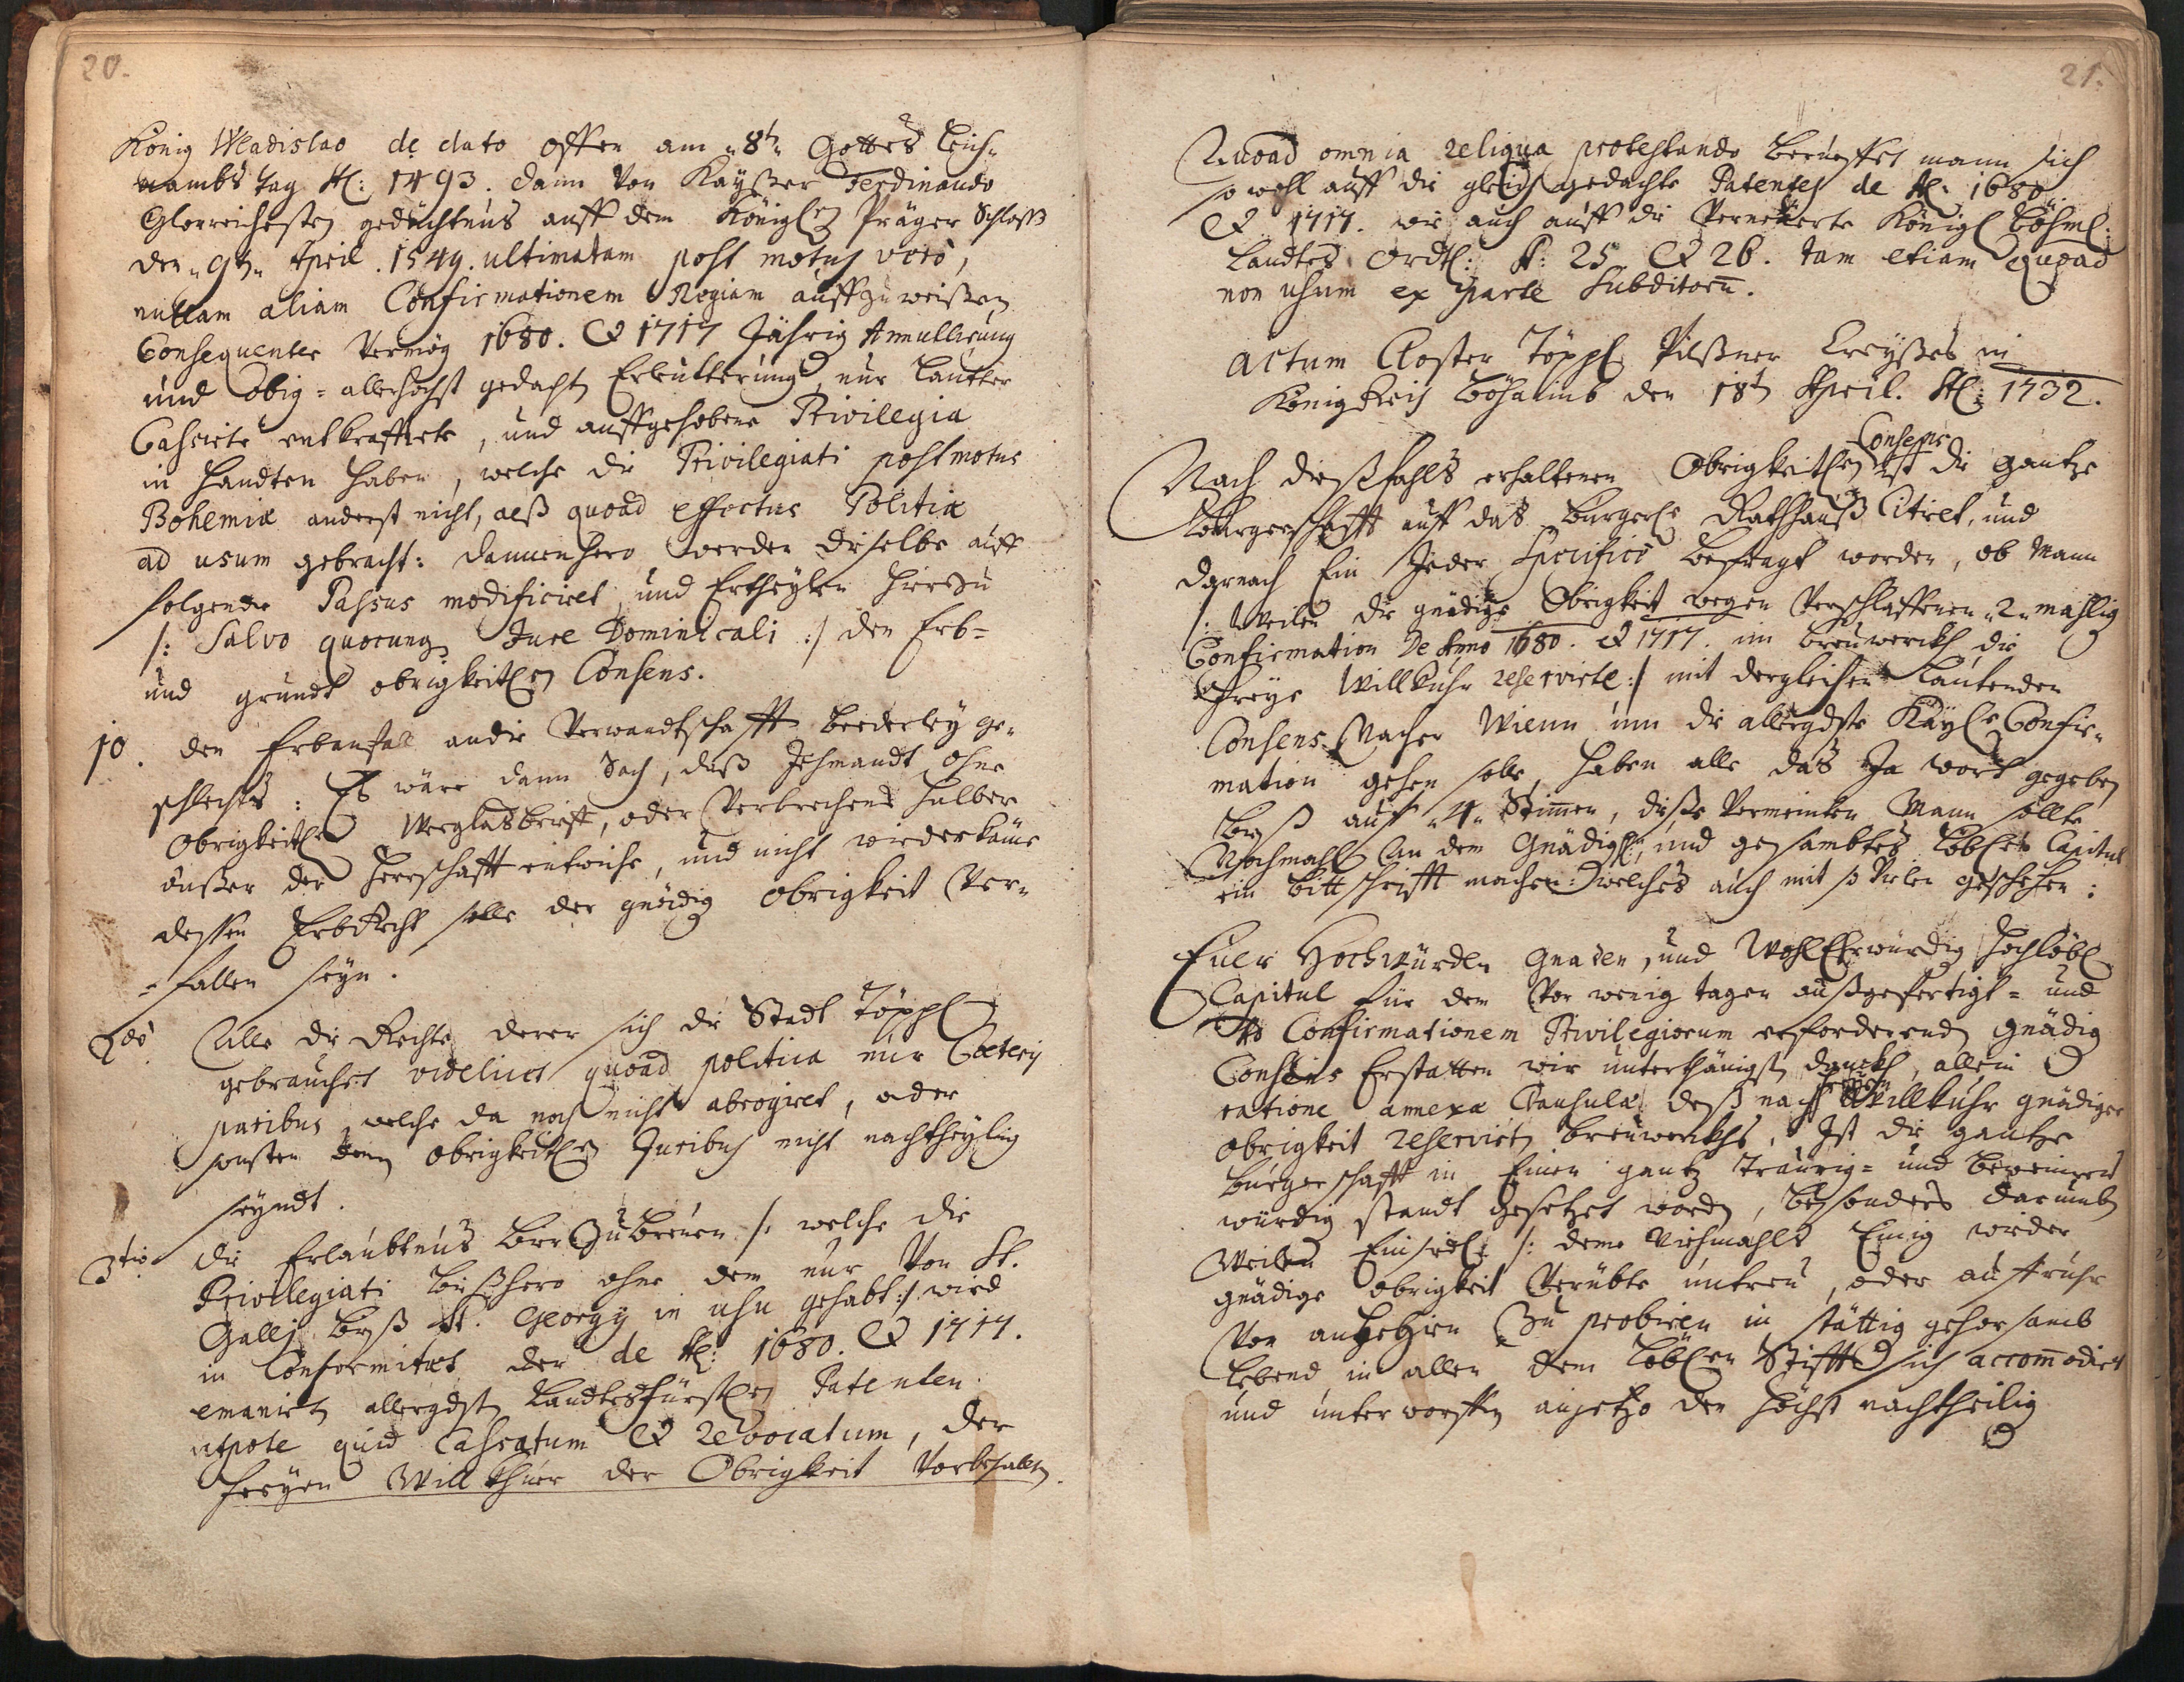 20.
König Wladislao de dato Offen am „8tn„ Gottes leich„
nambs tag Ao: 1493. dann Von Kayßer Ferdinando
Glorreichesten gedächtnus auff dem Königlen Präger Schloß
den „9tn„ April. 1549. ultimatam post motus verò,
nullam aliam Confirmationem Regiam auffzuweißen
Consequenter Vermög 1680. & 1717 Jährig Annullirung
und Obig-allerhöchst gedachtn Erleütterung, nur lautter
Cassirte entkrafftete, und auffgehobene Privilegia
in handten haben, welche die Privilegiati post motus
Bohemiæ anderst nicht, alß quoad effectus Politiæ
ad usum gebracht: dannenhero werden dieselbe auff
folgende Passus modificiret, und Ertheylen hierzu
/: Salvo quocunq Jure Dominicali :/ den Erb-
und grundt obrigkeitlen Consens.
10. den Erbanfall an die Verwandtschafft beederley ge„
schlechts: Es wäre dann Sach, daß Jehmandt ohne
Obrigkeitlen Weglasbrieff, oder Verbrechens halber
außer der Herrschafft entwiche, und nicht wiederkäme
dessen Erbrecht solle der gnädig obrigkeit Ver„
-fallen seyn.
2do Alle die Rechte derer sich die Stadt Töppl
gebrauchet videlicet quoad politica nur Cæteris
paribus, welche da noch nicht abrogiret, oder
sonsten denen obrigkeitlen Juribus nicht nachtheylig
seyndt.
3tio die Erlaubtnus bier Zu breuen /: welche die
Privilegiati bißhero ohne dem nur Von St.
Gallj biß St. Georgy in usu gehabt :/ wird
in Conformitæt der de Ao: 1680. & 1717.
emanirtn allergdstn Landtesfürstlen Patenten
utpote quid Cassatum & revocatum, der
freyen Willkhuer der Obrigkeit Vorbehaltn.
21.
Quoad omnia reliqua protestando berueffet mann sich
so wohl auff die gleich gedachte Patentes de Ao: 1680
& 1717. wie auch auff die Verneüerte Königl böhml:
Landtes Ordtl: A: 25 & 26. tam etiam quoad
non usum ex parte Subditorum.
Actum Closter Töppl Pilßner Creyßes in
Königreich böhaimb den 18tn April. Ao: 1732.
Consens
Nach dießfahls erhaltenen Obrigkeitlen ist die gantze
Burgerschafft auff das Burgerle Rathhauß Citiret, und
darnach Ein Jeder Specificè befragt worden, ob Mann
/: Weilen die gnädige Obrigkeit wegen Verschlaffenen „2„ mahlig
Confirmation De Anno 1680. & 1717. im breüwerckh die
Freye Willkuhr reservirte :/ mit dergleichen lautenden
Consens Nacher Wienn umb die allergdste Kayle Confir„
mation gehen solle, haben alle das Ja wort gegeben
biß auf „4„ Stimen, diße Vermeinten Mann sollte
Nochmahl an dem Gnädigen, und gesambtes löbles Capitul
ein bittschrifft machen: welches auch mit so Vielen geschehen:
Euer Hochwürden Gnaden, und WohlEhrwürdig Hochlöbl
Capitul für dem Vor wenig tagen außgefertigt- und
Ad Confirmationem Privilegiorum erforderendn Gnädig
Consens Erstatten wir unterthänigstn danckh, allein
freyen
ratione annexæ Clausulæ deß nach Willkuhr gnädiger
obrigkeit reservirtn breuwerckhs, Ist die gantze
burgerschafft in Einen gantz traurig- und beweinens
würdig standt gesetzet wordn, besonders darumb
Weilen Einseits /: deme Niehmahls Einig wieder
gnädige obrigkeit Verübte untreu, oder auffruhr
Von anhero Zu probiren in stättig gehorsamb
Lebend in allen dem löblen Stifft sich accommodirt
und unterworffen anjetzo den höchst nachtheilig